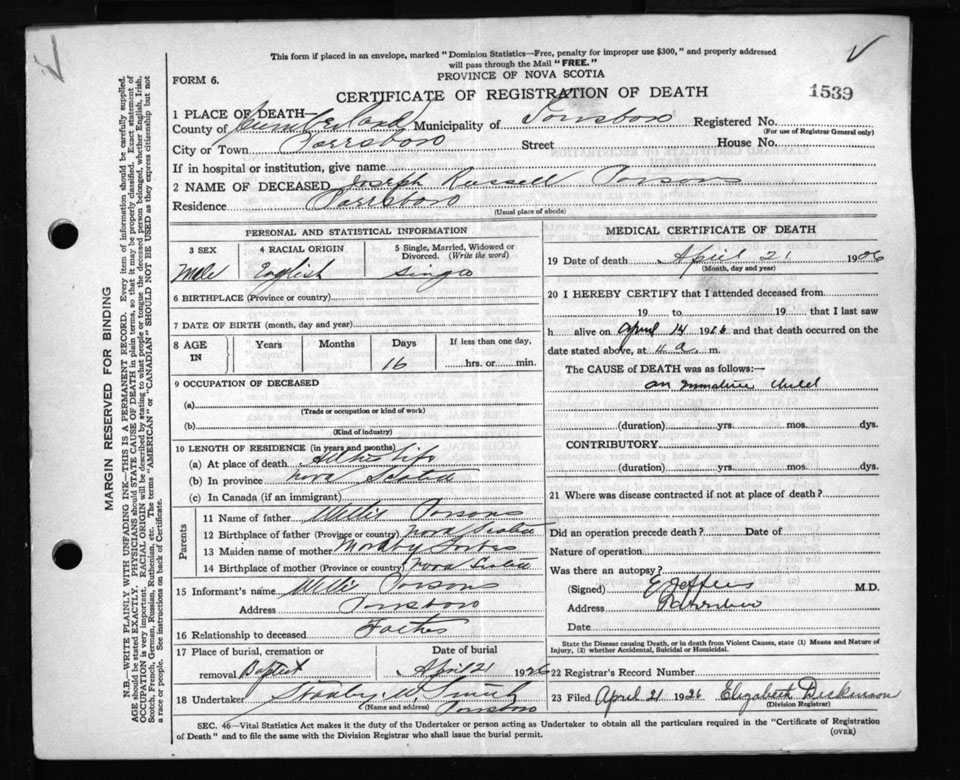 This form if placed in an envelope, marked "Dominion Statistics—Free, penalty for improper use $300," and properly addressed
will pass through the Mail "FREE."
PROVINCE OF NOVA SCOTIA
FORM 6.
CERTIFICATE OF REGISTRATION OF DEATH
1539
1 PLACE OF DEATH—
County of Cumberland Municipality of Parrsboro Registered No.
(For use of Registrar General only)
City or Town Parrsboro Street House No.
If in hospital or institution, give name
2 NAME OF DECEASED Joseph Russell Parsons
Residence Parrsboro
(Usual place of abode)
PERSONAL AND STATISTICAL INFORMATION
3 SEX 4 RACIAL ORIGIN 5 Single, Married, Widowed or Divorced. (Write the word)
Male English Single
6 BIRTHPLACE (Province or country)
7 DATE OF BIRTH (month, day and year)
8 AGE IN Years Months Days If less than one day,
16 hrs. or min.
9 OCCUPATION OF DECEASED
(a)
(Trade or occupation or kind of work)
(b)
(Kind of industry)
10 LENGTH OF RESIDENCE (in years and months)
(a) At place of death All his life
(b) In province Nova Scotia
(c) In Canada (if an immigrant)
Parents
11 Name of father Parsons
12 Birthplace of father (Province or country) Nova Scotia
13 Maiden name of mother Forbes
14 Birthplace of mother (Province or country) Nova Scotia
15 Informant's name Parsons
Address Parrsboro
16 Relationship to deceased Father
17 Place of burial, cremation or Date of burial
removal Baptist April 21 1926
18 Undertaker Smith
(Name and address) Parrsboro
MEDICAL CERTIFICATE OF DEATH
19 Date of death April 21 1926
(Month, day and year)
20 I HEREBY CERTIFY that I attended deceased from
19 to 19 that I last saw
h alive on April 14 1926 and that death occurred on
date stated above, at m.
The CAUSE OF DEATH was as follows:—
an immature child
(duration) yrs. mos. dys.
CONTRIBUTORY
(duration) yrs. mos. dys.
21 Where was disease contracted if not at place of death?
Did an operation precede death? Date of
Nature of operation
Was there an autopsy?
(Signed) E Jeffers M.D.
Address Parrsboro
Date
State the Disease causing Death, or in death from Violent Causes, state (1) Means and Nature of
Injury, (2) whether Accidental, Suicidal or Homicidal.
22 Registrar's Record Number
23 Filed April 21 1926 Elizabeth Dickinson
(Division Registrar)
SEC. 46—Vital Statistics Act makes it the duty of the Undertaker or person acting as Undertaker to obtain all the particulars required in the "Certificate of Registration
of Death" and to file the same with the Division Registrar who shall issue the burial permit.
(OVER)
MARGIN RESERVED FOR BINDING
N.B.—WRITE PLAINLY WITH UNFADING INK—THIS IS A PERMANENT RECORD. Every item of information should be carefully supplied.
AGE should be stated EXACTLY. PHYSICIANS should STATE CAUSE OF DEATH in plain terms, so that it may be properly classified. Exact statement of
OCCUPATION is very important. RACIAL ORIGIN will be described by stating to what people or tongue the deceased person belonged, whether English, Irish,
Scotch, French, German, Russian, Ruthenian, etc. The terms "AMERICAN" or "CANADIAN" SHOULD NOT BE USED as they express citizenship but not
a race or people. See instructions on back of Certificate.